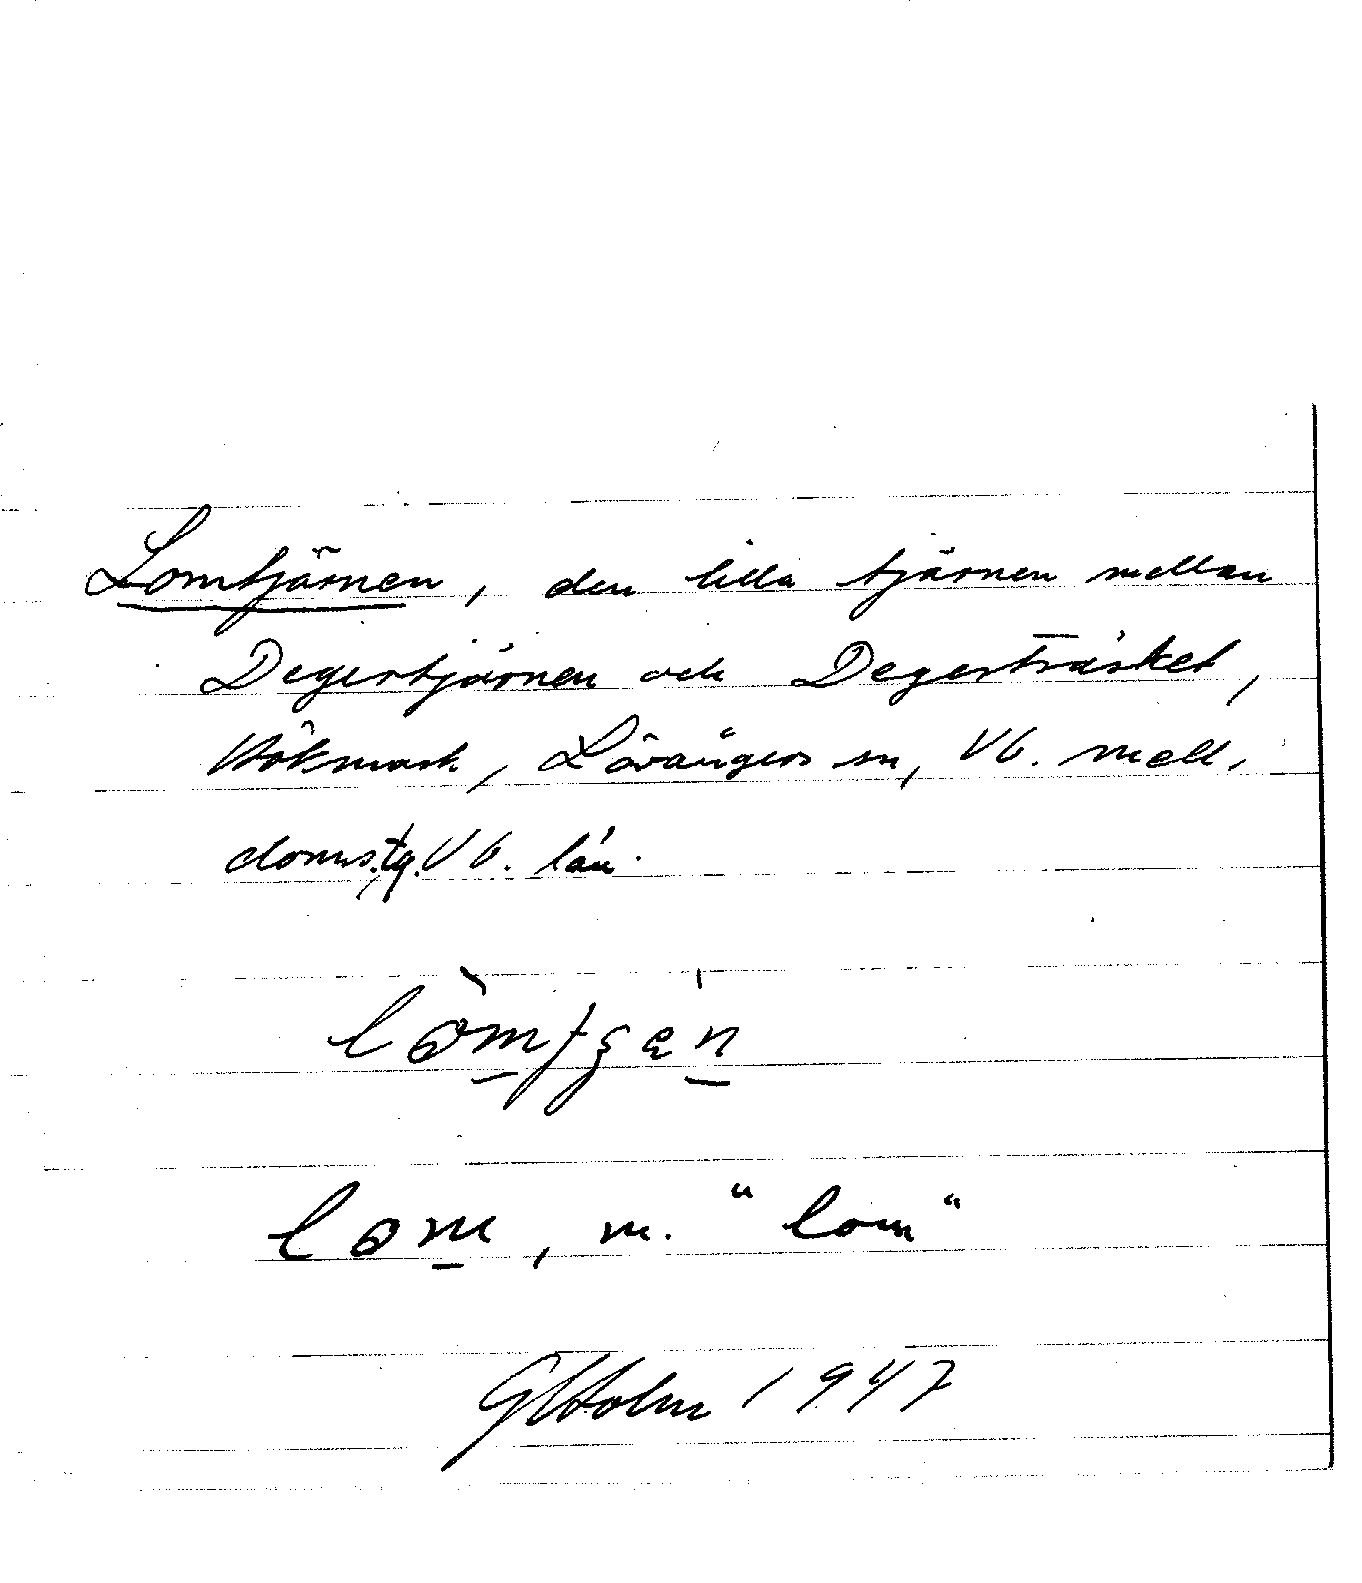 Lomtjärnen, den lilla tjärnen mellan
Degertjärnen och Degerträsket,
Hökmark, Lövångers sn, Vb. mell.
doms.tg. Vb. län.
lom, m. "lom"
GHolm 1947